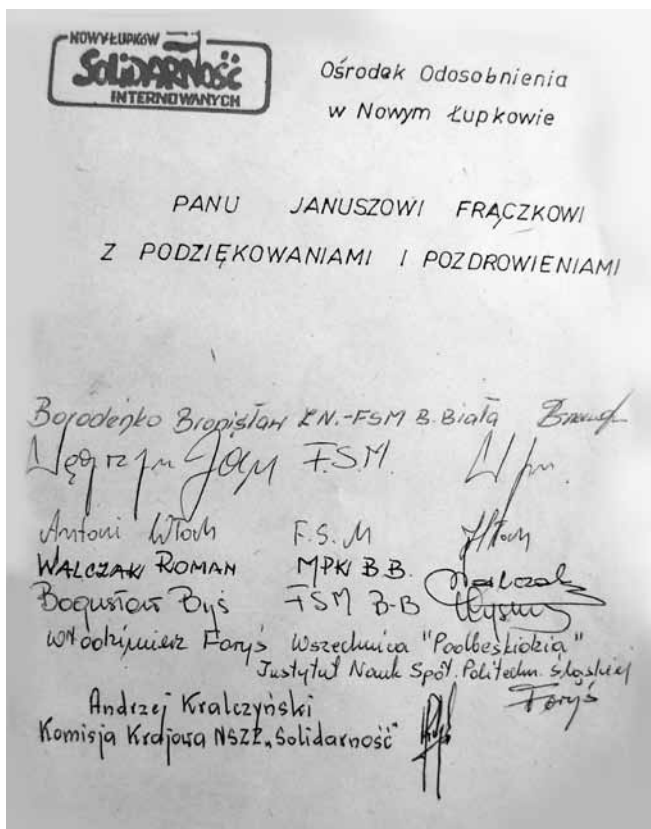 NOWY ŁUPKÓW
SOLIDARNOŚĆ
INTERNOWANYCH
Ośrodek Odosobnienia
w Nowym Łupkowie
PANU JANUSZOWI FRĄCZKOWI
Z PODZIĘKOWANIAMI I POZDROWIENIAMI
Borodeńko Bronisław -FSM B. Biała
Węgrzyn Jan F.S.M.
Antoni Włoch F.S.M Włoch
WALCZAK ROMAN MPK B.B. Walczak
Bogusław Byś FSM B-B
Włodzimierz Foryś Wszechnica "Podbeskidzia"
Instytut Nauk Społ. Politechn. Śląskiej
Foryś
Andrzej Kralczyński
Komisja Krajowa NSZZ „Solidarność"